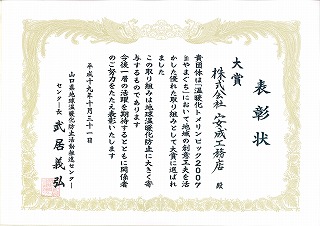 表彰状
大賞
株式会社 安成工務店 殿
貴団体は「温暖化トメリンピック2007
inやまぐち」において地域の創意工夫を活
かした優れた取り組みとして大賞に選ばれ
ました
この取り組みは地球温暖化防止に大きく寄
与するものであります
今後一層の活躍を期待するとともに関係者
のご努力をたたえ表彰いたします
平成十九年十月三十一日
山口県地球温暖化防止活動推進センター
センター長 武居義弘